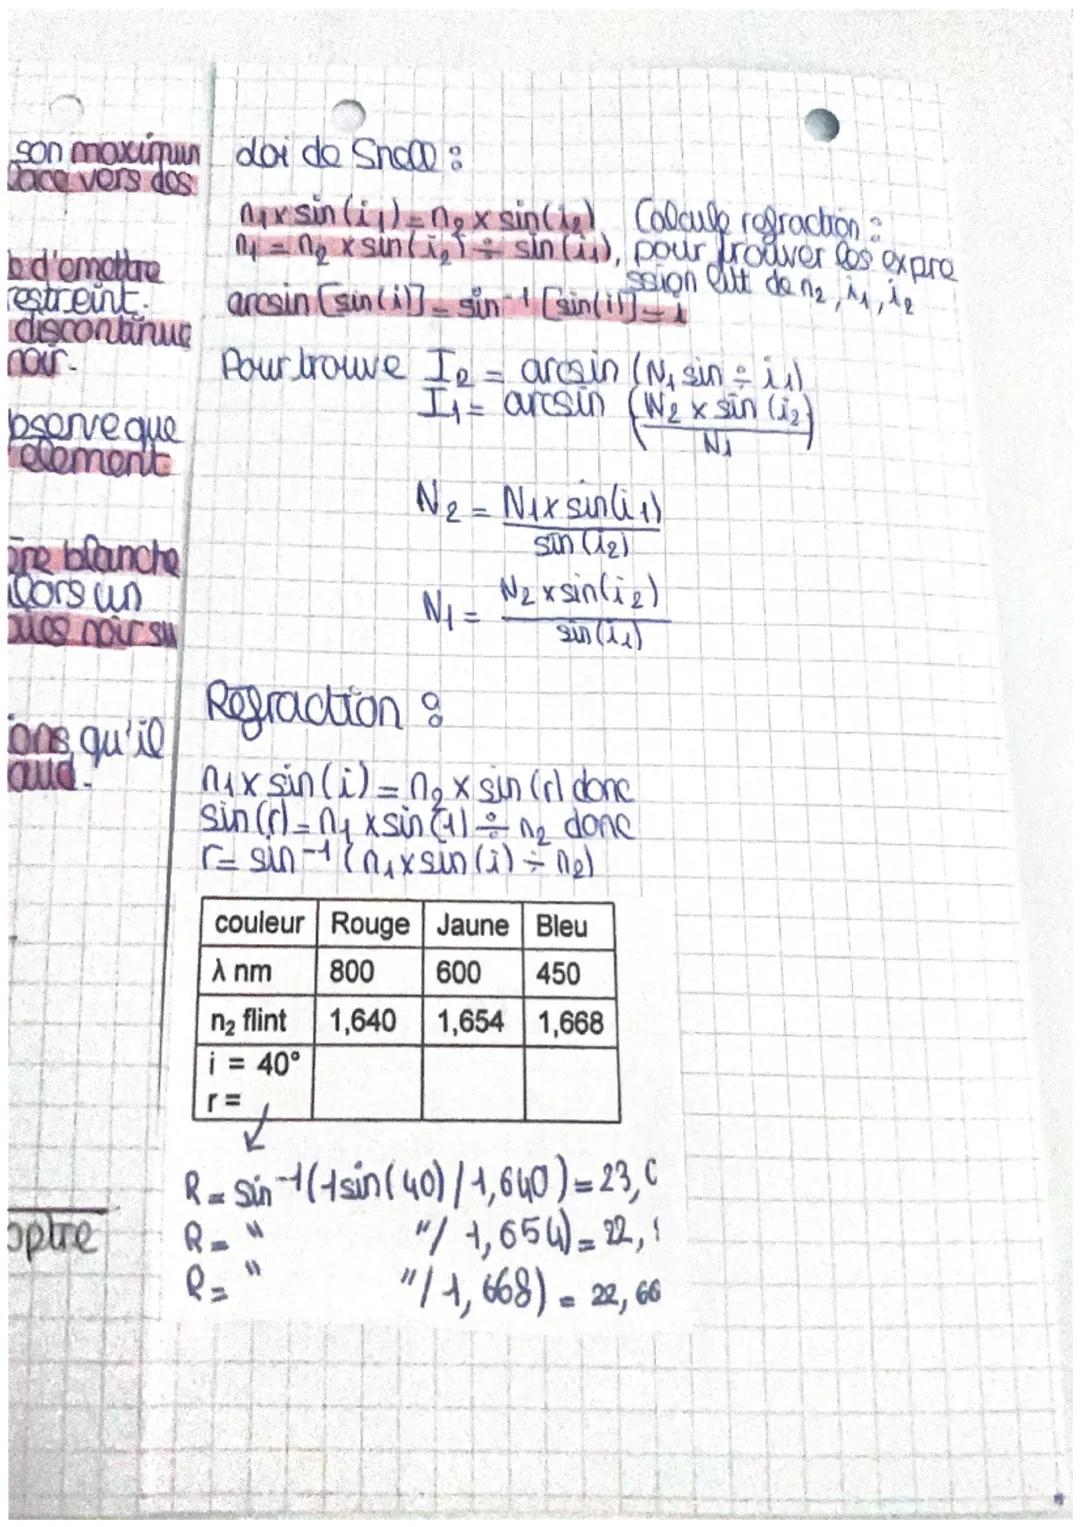 son maximum
place vers des
b d'emettre
restreint.
discontinue
noir.
bserve que
element
ore blanche
alors un
ques noir su
ions qu'il
aud.
optre
Loi de Snell :
n1 x sin(i1) = n2 x sin(i2)
n1 = n2 x sin(i2) ÷ sin(i1),
arcsin [sin(i)] = sin⁻¹ [sin(i)] = i
Calcule refraction :
pour trouver les expre
ssion litt de n2, i1, i2
Pour trouve I2 = arcsin (N1 sin ÷ i1)
I1 = arcsin (N2 x sin (i2) / N1)
N2 = N1 x sin(i1) / sin(i2)
N1 = N2 x sin(i2) / sin(i1)
Refraction :
n1 x sin(i) = n2 x sin(r) donc
sin(r) = n1 x sin(1) ÷ n2 donc
r = sin⁻¹ (n1 x sin(i) ÷ n2)
couleur Rouge Jaune Bleu
λ nm 800 600 450
n₂ flint 1,640 1,654 1,668
i = 40°
r =
R = sin⁻¹(1sin(40) / 1,640) = 23,
R = " "/ 1,654) = 22,
R = " "/ 1,668) = 22,66